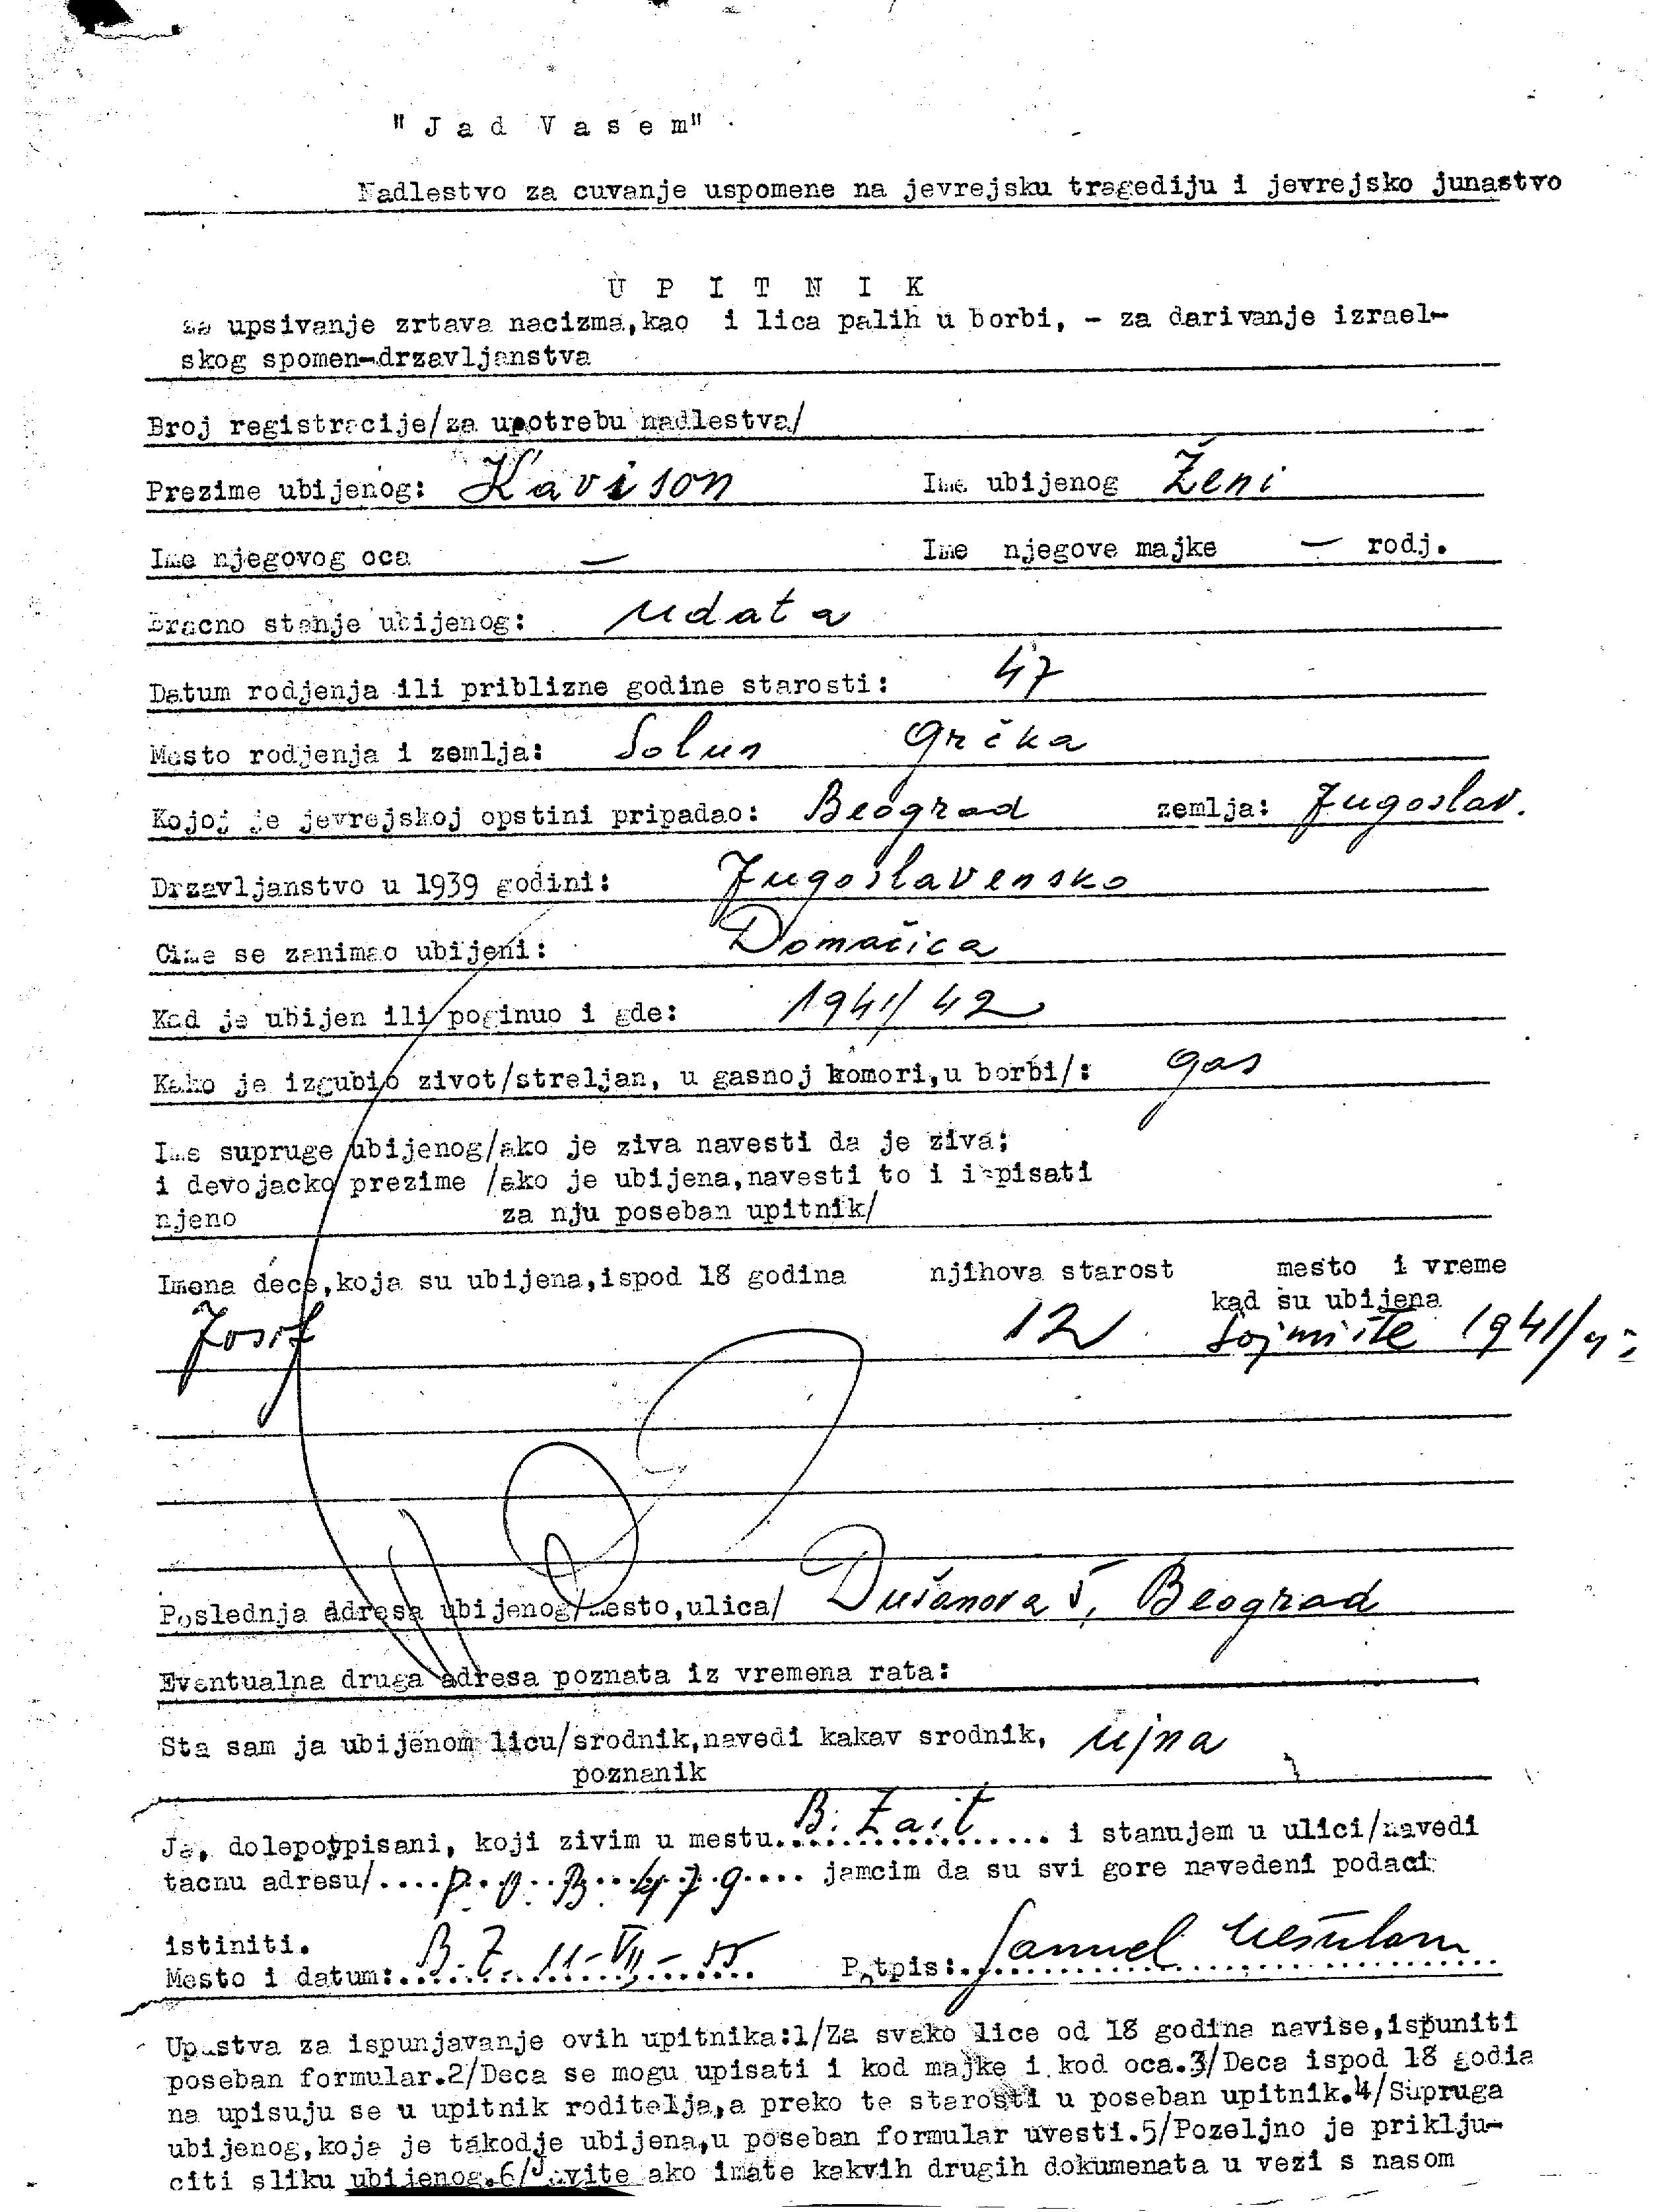 "Jad Vasem"
Nadlestvo za cuvanje uspomene na jevrejsku tragediju i jevrejsko junastvo
UPITNIK
za upsivanje zrtava nacizma, kao i lica palih u borbi, - za darivanje izrael-
skog spomen-drzavljanstva
Broj registracije/za upotrebu nadlestva/
Prezime ubijenog: Kavison Ime ubijenog Ženi
Ime njegovog oca — Ime njegove majke — rodj.
Bracno stanje ubijenog: udata
Datum rodjenja ili priblizne godine starosti: 47
Mesto rodjenja i zemlja: Solun Grčka
Kojoj je jevrejskoj opstini pripadao: Beograd zemlja: Jugoslav.
Drzavljanstvo u 1939 godini: Jugoslavensko
Cime se zanimao ubijeni: Domaćica
Kad je ubijen ili poginuo i gde: 1941/42
Kako je izgubio zivot/streljan, u gasnoj komori,u borbi/: gas
Ime supruge ubijenog/ako je ziva navesti da je ziva;
i devojacko prezime /ako je ubijena,navesti to i ispisati
njeno za nju poseban upitnik/
Imena dece,koja su ubijena,ispod 18 godina njihova starost mesto i vreme
kad su ubijena
Josif 12 Sajmište 1941/42
Poslednja adresa ubijenog/mesto,ulica/ Dušanova 5, Beograd
Eventualna druga adresa poznata iz vremena rata:
Sta sam ja ubijenom licu/srodnik,navedi kakav srodnik, ujna
poznanik
Ja, dolepotpisani, koji zivim u mestu B. Zait i stanujem u ulici/navedi
tacnu adresu/....P.O.B. 479.... jamcim da su svi gore navedeni podaci
istiniti.
Mesto i datum: B.Z. 11-VII-55 Potpis: Samuel Mešulam
Upustva za ispunjavanje ovih upitnika:1/Za svako lice od 18 godina navise,ispuniti
poseban formular.2/Deca se mogu upisati i kod majke i kod oca.3/Deca ispod 18 godia
na upisuju se u upitnik roditelja,a preko te starosti u poseban upitnik.4/Supruga
ubijenog,koja je takodje ubijena,u poseban formular uvesti.5/Pozeljno je priklju-
citi sliku ubijenog.6/Javite ako imate kakvih drugih dokumenata u vezi s nasom